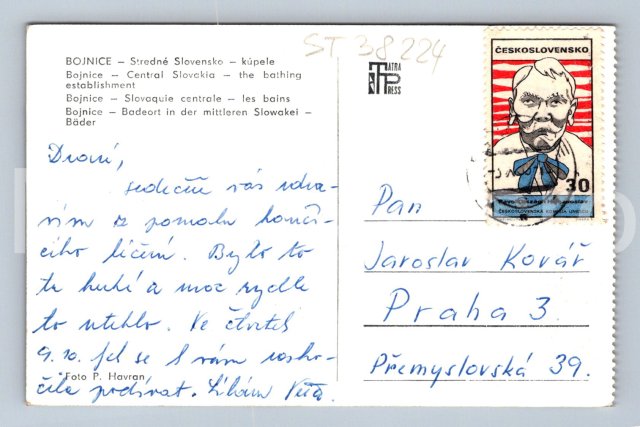 ST 38 224
BOJNICE – Stredné Slovensko – kúpele
Bojnice – Central Slovakia – the bathing
establishment
Bojnice – Slovaquie centrale – les bains
Bojnice – Badeort in der mittleren Slowakei –
Bäder
TATRA
PRESS
ČESKOSLOVENSKO
30
ČESKOSLOVENSKÁ
Drazí,
srdečně vás zdra-
vím z pomalu končí-
cího léčení. Bylo to
tu hezké a moc rychle
to uteklo. Ve čtvrtek
9.10. se k vám
podívat. Líbám Věra
Foto P. Havran
Pan
Jaroslav Kovář
Praha 3.
Přemyslovská 39.